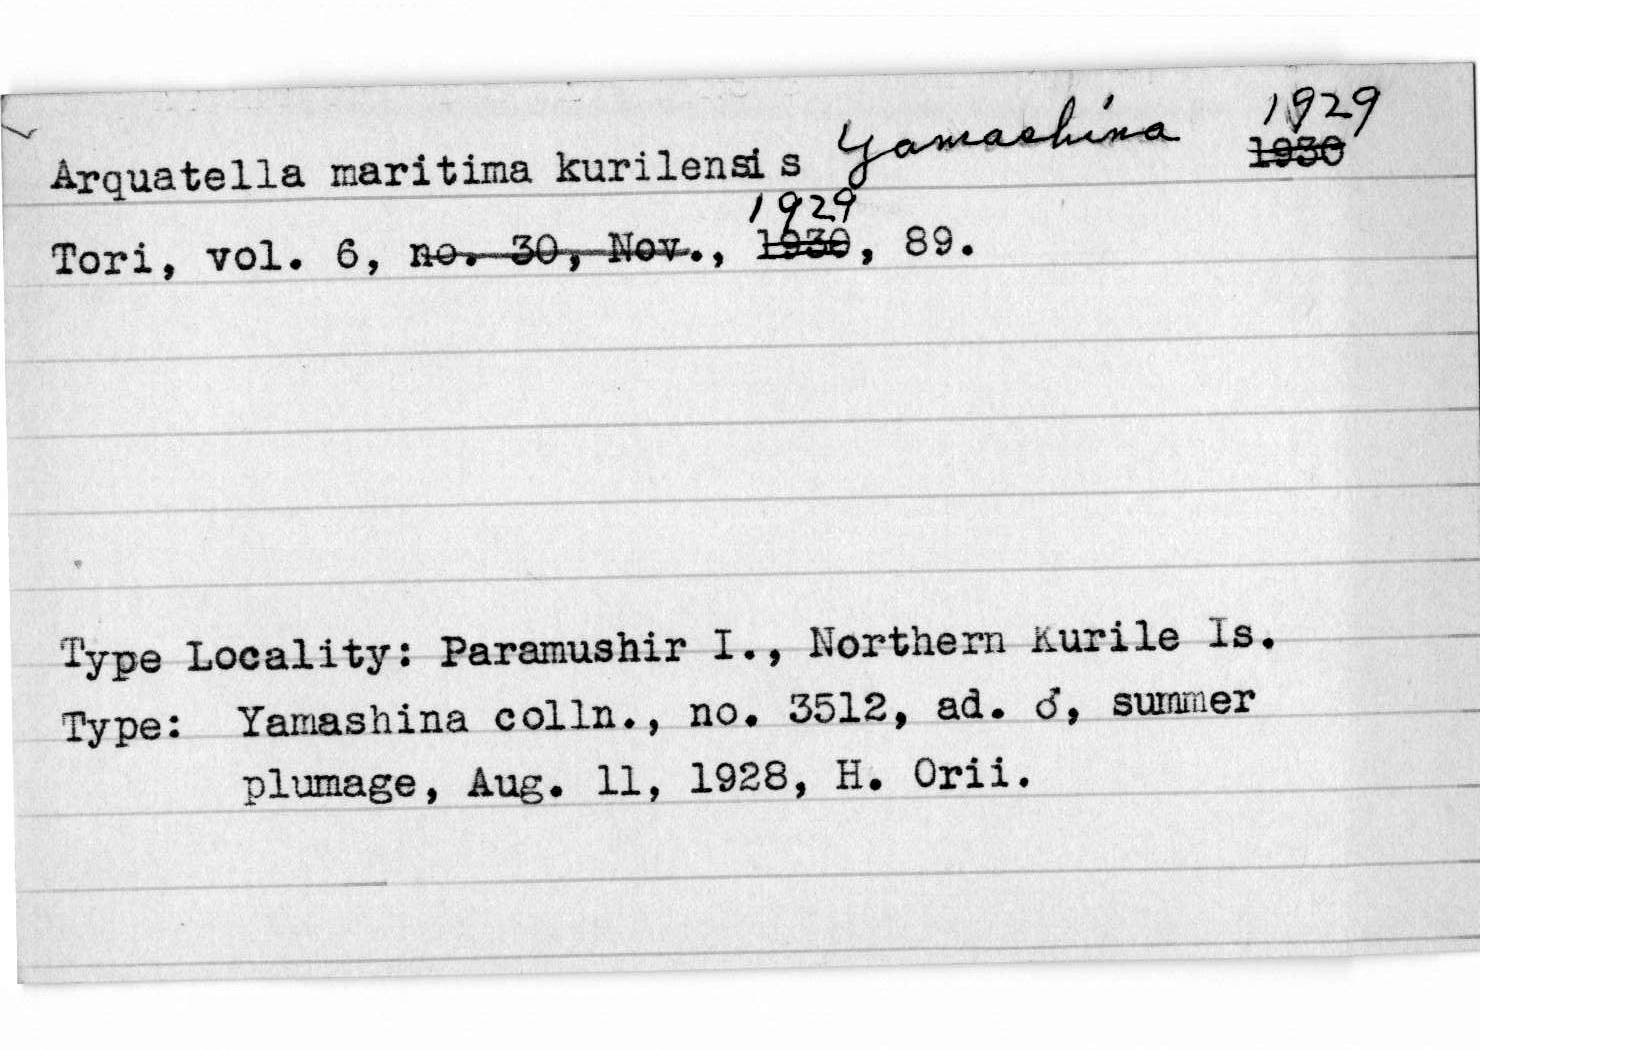 Arquatella maritima kurilensis Yamashina 1929 1930
Tori, vol. 6, no. 30, Nov., 1929 1930, 89.
Type Locality: Paramushir I., Northern Kurile Is.
Type: Yamashina colln., no. 3512, ad. ♂, summer
plumage, Aug. 11, 1928, H. Orii.